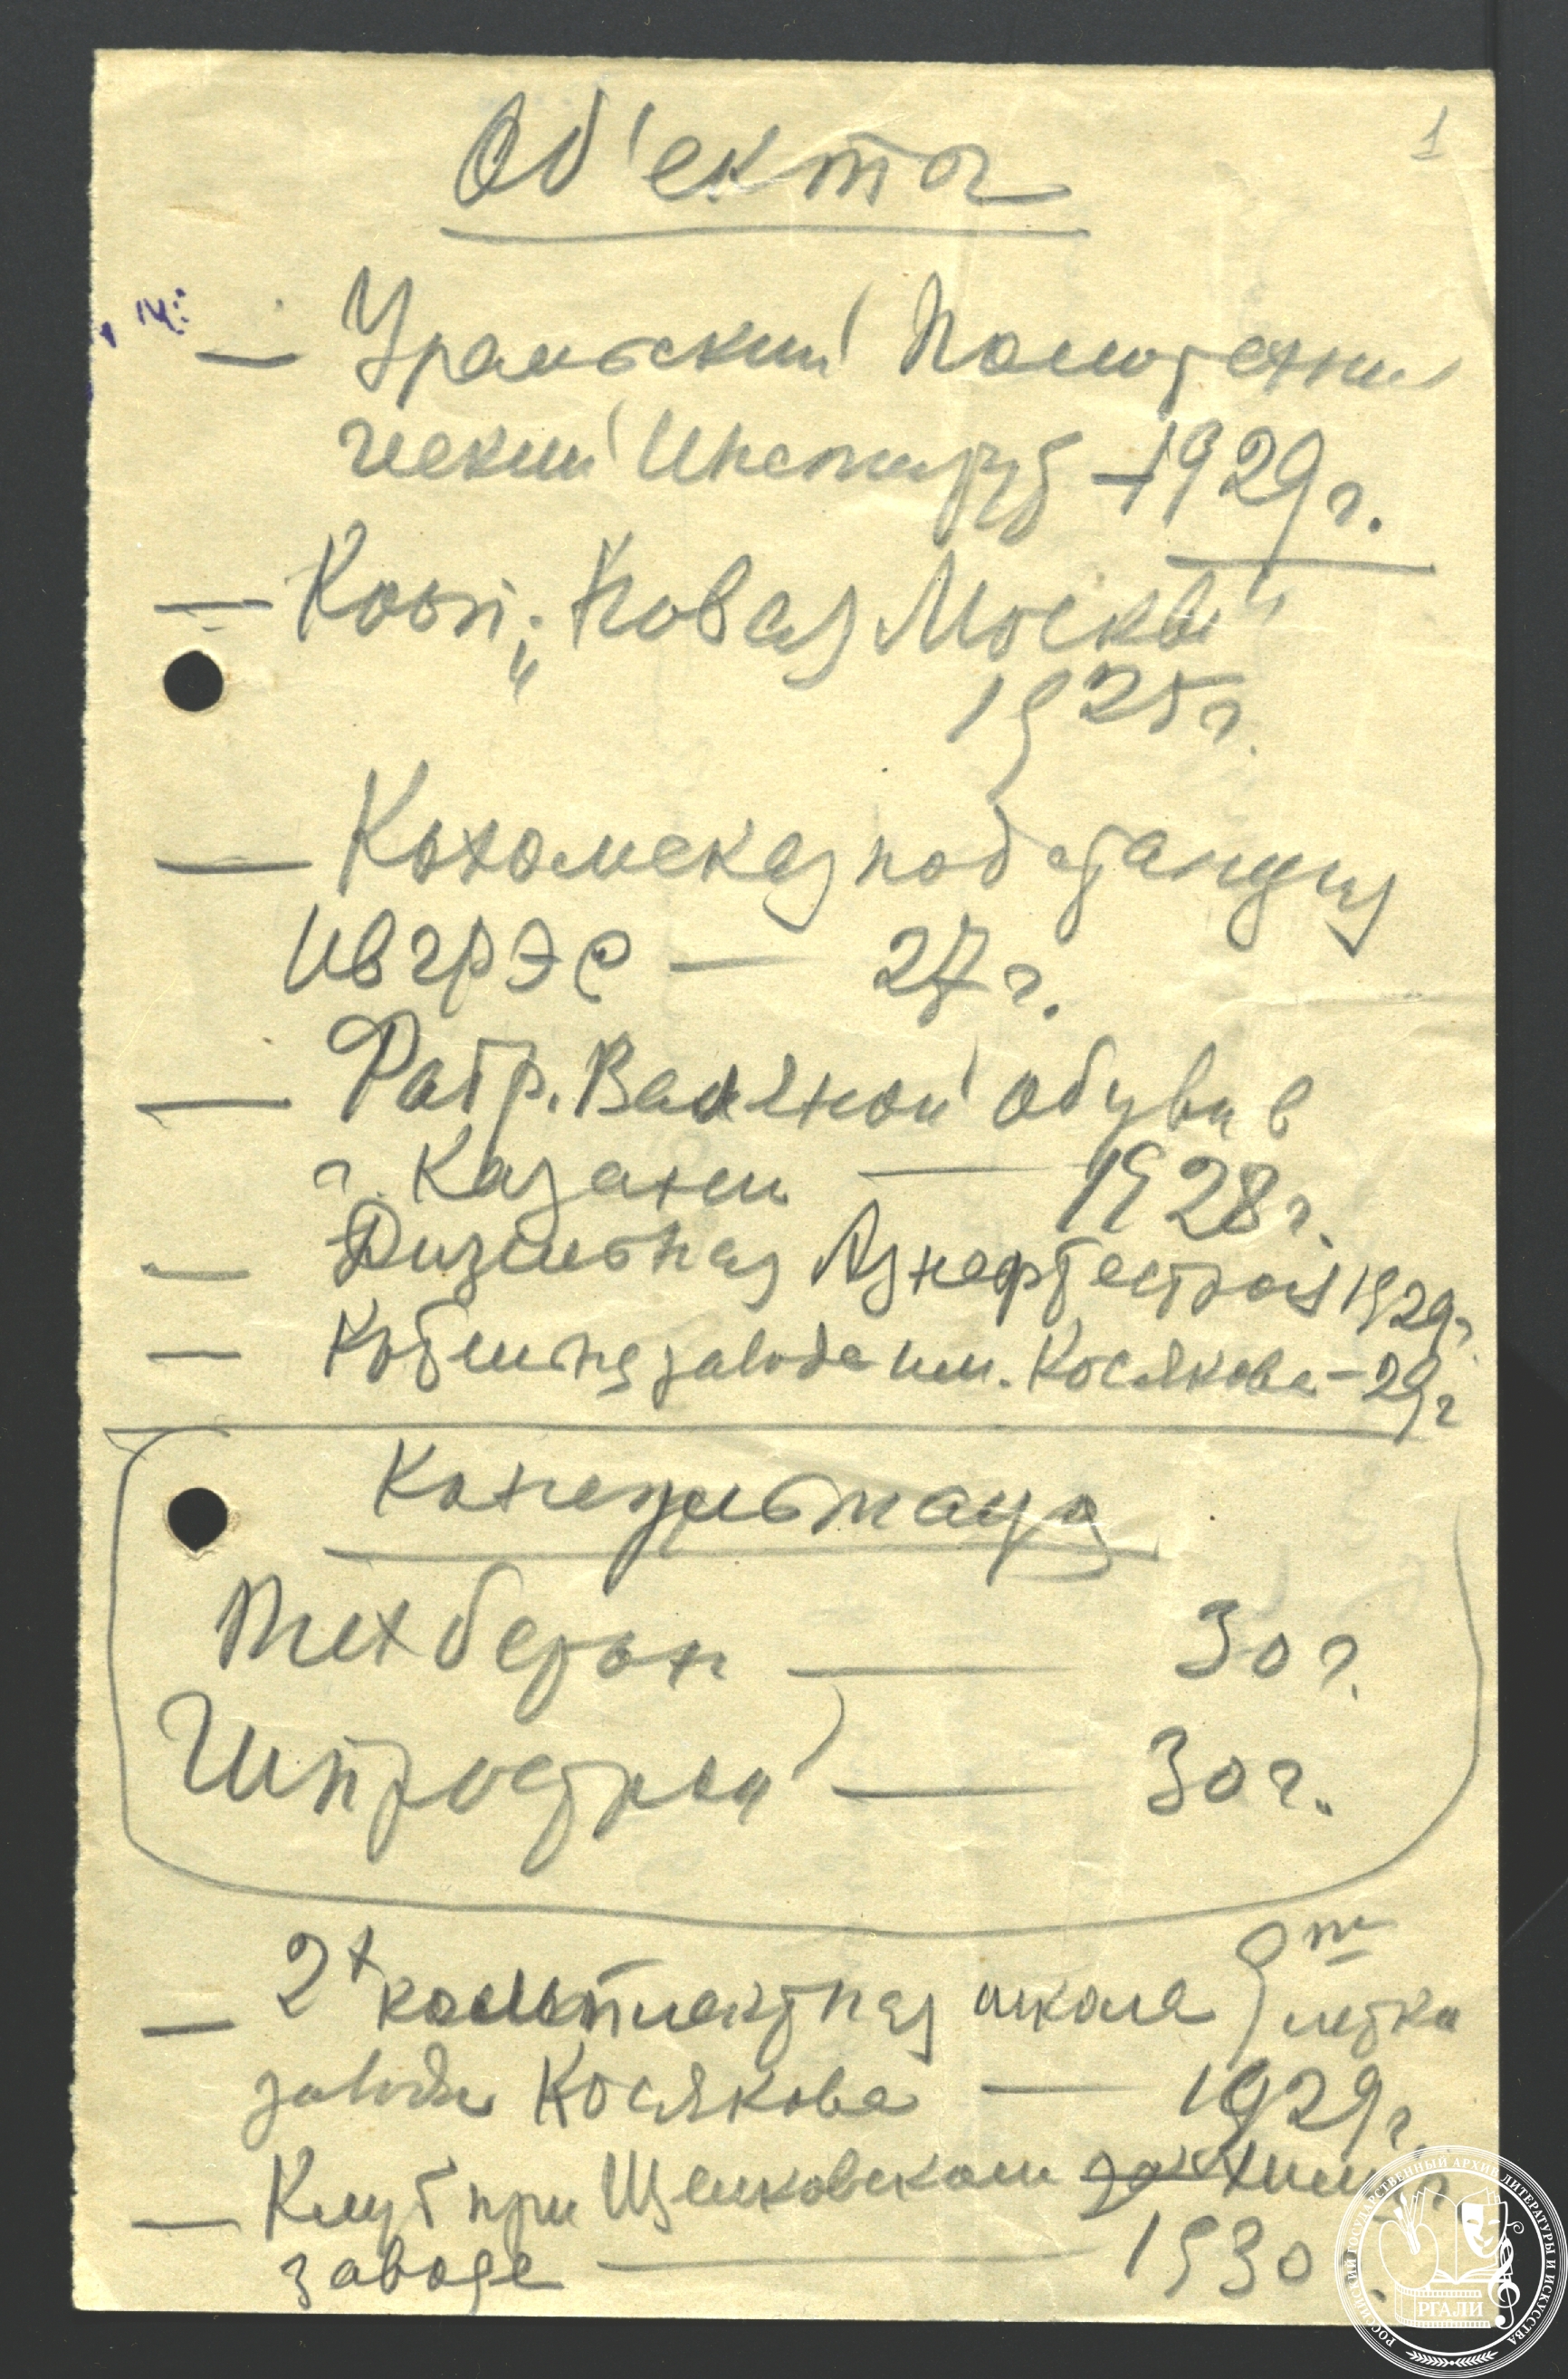 1
Об'екты
— Уральский Политехни
ческий Институт — 1929 г.
— Кооп. „Новая Москва"
1925 г.
— Кохомская подстанция
ИвГРЭС — 27 г.
— Фабр. Валеной обуви в
г. Казани — 1928 г.
— Дизельная Азнефтестроя 1929 г.
— Котельная завода им. Косякова — 29 г
Консультац
Техбетон — 30 г.
Гипрострой — 30 г.
— 2х комплектная школа 9ти летка
завода Косякова — 1929 г.
— Клуб при Щелковском хим
заводе — 1930
РОССИЙСКИЙ ГОСУДАРСТВЕННЫЙ АРХИВ ЛИТЕРАТУРЫ И ИСКУССТВА
РГАЛИ